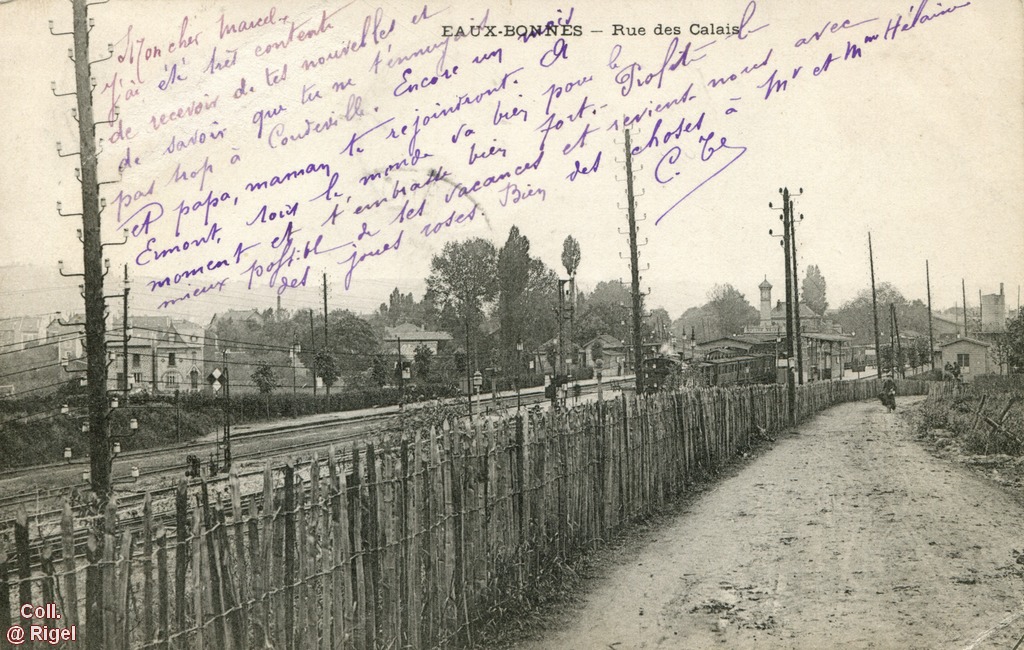 EAUX-BONNES — Rue des Calais
Mon cher Marcel.
j'ai été très contente
de recevoir de tes nouvelles et
de savoir que tu ne t'ennuyais
pas trop à Coudeville. Encore un mois
et papa, maman te rejoindront. A
Ermont, tout le monde va bien pour le
moment et t'embrasse bien fort. Profite le
mieux possible de tes vacances et revient-nous avec
des joues roses. Bien des choses à Mr et Mme Hélaine
C.
Coll.
@ Rigel